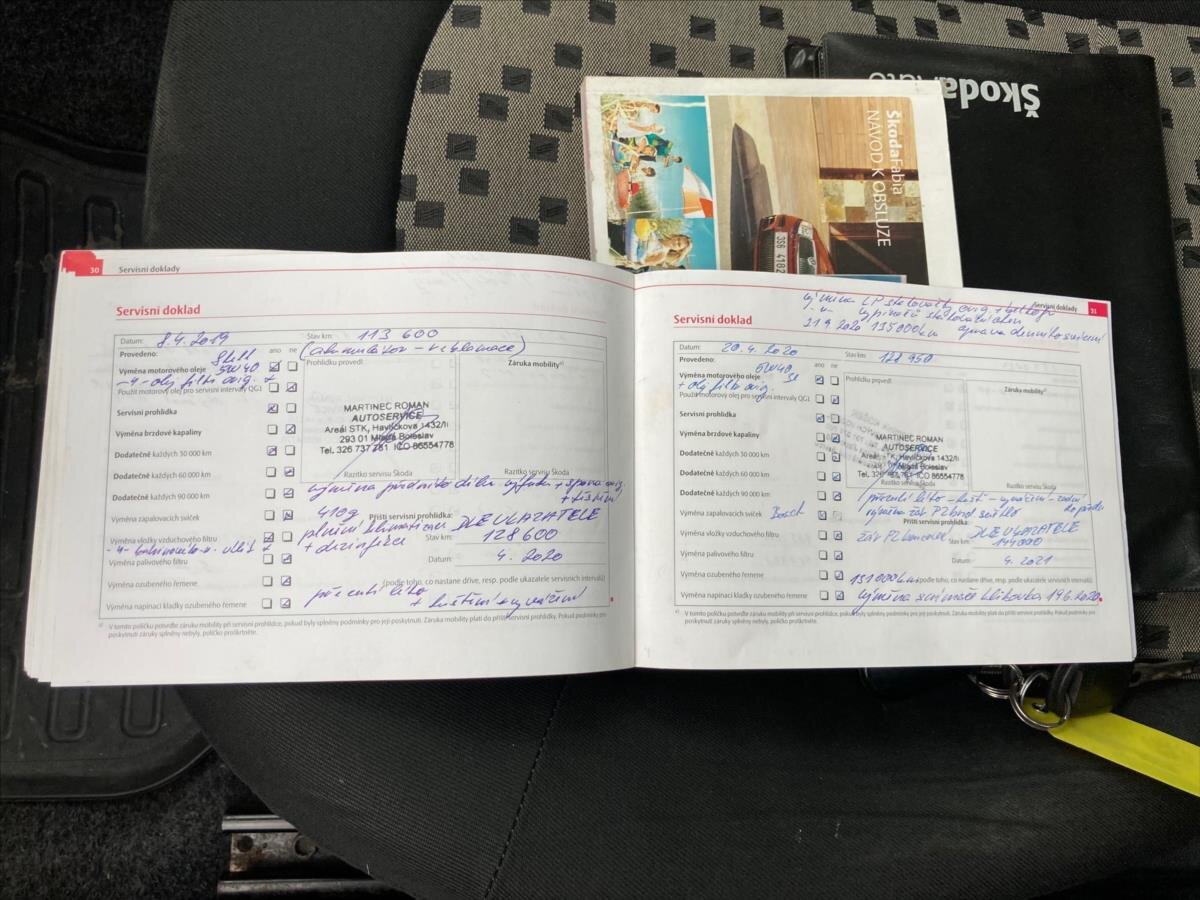 ŠkodaAuto
ŠkodaFabia
NÁVOD K OBSLUZE
3S6 4182
30 Servisní doklady
Servisní doklad
Datum: 8.4.2019 Stav km: 113 600
Provedeno: ano ne (akumulátor - reklamace)
Shell
Výměna motorového oleje 5W40 Prohlídku provedl: Záruka mobility a)
-"- olej filtr orig.
Použit motorový olej pro servisní intervaly QG1
Servisní prohlídka
MARTINEC ROMAN
AUTOSERVICE
Areál STK, Havlíčkova 1432/II
293 01 Mladá Boleslav
Tel. 326 737 281 IČO 86554778
Výměna brzdové kapaliny
Dodatečné každých 30 000 km
Dodatečné každých 60 000 km Razítko servisu Škoda
výměna předního dílu výfuku + spona orig.
+ těsnění
Dodatečné každých 90 000 km
Výměna zapalovacích svíček 410g Příští servisní prohlídka:
plnění klimatizace DLE UKAZATELE
+ dezinfekce
Výměna vložky vzduchového filtru Stav km: 128 600
Výměna palivového filtru Datum: 4. 2020
Výměna ozubeného řemene (podle toho, co nastane dříve, resp. podle ukazatele servisních intervalů)
přezutí léto
Výměna napínací kladky ozubeného řemene + čištění + vyvážení
a) V tomto políčku potvrďte záruku mobility při servisní prohlídce, pokud byly splněny podmínky pro její poskytnutí. Záruka mobility platí do příští servisní prohlídky. Pokud podmínky pro
poskytnutí záruky splněny nebyly, políčko proškrtněte.
Servisní doklady 31
výměna LP
21.9.2020 135000km oprava denního svícení
Servisní doklad
Datum: 20.4.2020 Stav km: 122 950
Provedeno: ano ne
Výměna motorového oleje 5W40 Prohlídku provedl: Záruka mobility a)
+ olej filtr orig.
Použit motorový olej pro servisní intervaly QG1
Servisní prohlídka
MARTINEC ROMAN
AUTOSERVICE
Areál STK, Havlíčkova 1432/II
293 01 Mladá Boleslav
Tel. 326 737 281 IČO 86554778
Výměna brzdové kapaliny
Dodatečné každých 30 000 km
Dodatečné každých 60 000 km Razítko servisu Škoda Razítko servisu Škoda
Dodatečné každých 90 000 km
přezutí léto - čišt. - vyvážení - zadní
do předu
Výměna zapalovacích svíček Bosch výměna žár. PZ brzd světlo
Příští servisní prohlídka:
DLE UKAZATELE
Výměna vložky vzduchového filtru žár. PZ Stav km: 144000
Výměna palivového filtru Datum: 4. 2021
Výměna ozubeného řemene 131000km (podle toho, co nastane dříve, resp. podle ukazatele servisních intervalů)
Výměna napínací kladky ozubeného řemene výměna 19.6.2020
a) V tomto políčku potvrďte záruku mobility při servisní prohlídce, pokud byly splněny podmínky pro její poskytnutí. Záruka mobility platí do příští servisní prohlídky. Pokud podmínky pro
poskytnutí záruky splněny nebyly, políčko proškrtněte.